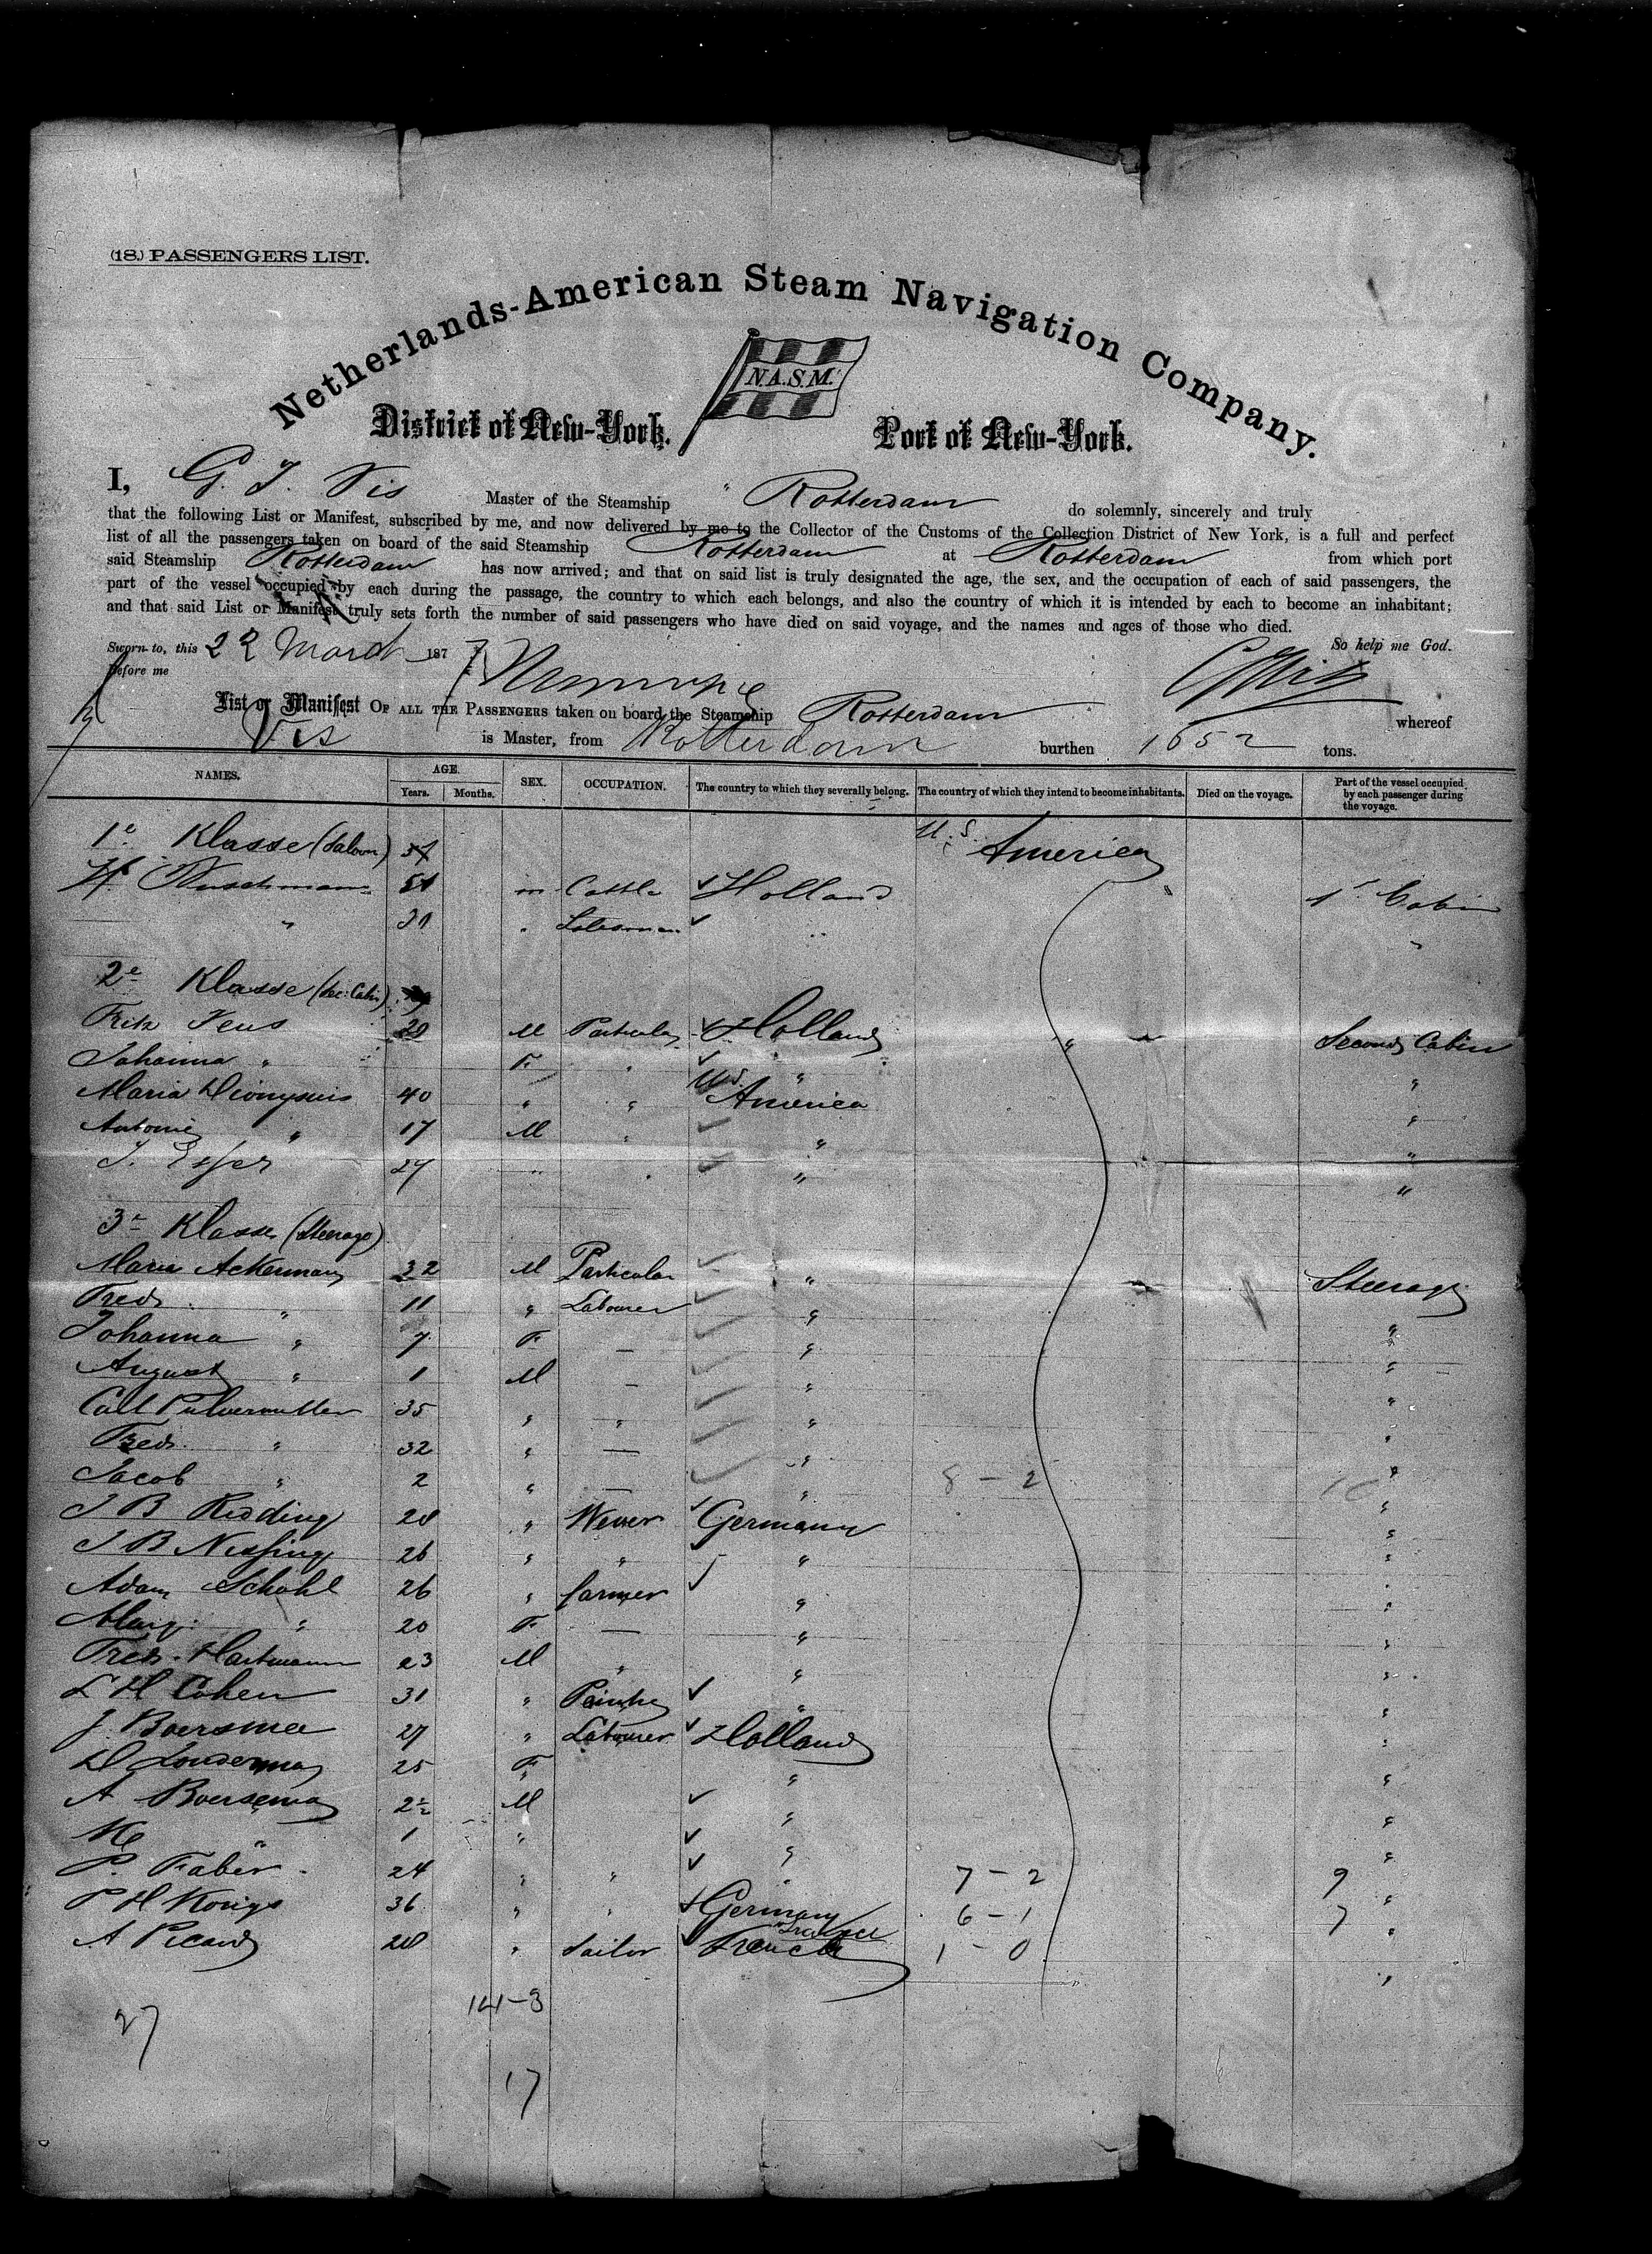 (18.) PASSENGERS LIST.
Netherlands-American Steam Navigation Company.
N.A.S.M.
District of New-York. Port of New-York.
I, G. J. Vis Master of the Steamship " Rotterdam do solemnly, sincerely and truly
that the following List or Manifest, subscribed by me, and now delivered by me to the Collector of the Customs of the Collection District of New York, is a full and perfect
list of all the passengers taken on board of the said Steamship Rotterdam at Rotterdam from which port
said Steamship Rotterdam has now arrived; and that on said list is truly designated the age, the sex, and the occupation of each of said passengers, the
part of the vessel occupied by each during the passage, the country to which each belongs, and also the country of which it is intended by each to become an inhabitant;
and that said List or Manifest truly sets forth the number of said passengers who have died on said voyage, and the names and ages of those who died.
So help me God.
Sworn to, this 22 March 187
Before me
List or Manifest OF ALL THE PASSENGERS taken on board the Steamship Rotterdam whereof
Vis is Master, from Rotterdam burthen 1652 tons.
NAMES. AGE. SEX. OCCUPATION. The country to which they severally belong. The country of which they intend to become inhabitants. Died on the voyage. Part of the vessel occupied by each passenger during the voyage.
Years. Months.
1e Klasse (Saloon) U.S. America
51 m Cattle Holland " 1st Cabin
" 31 " Salesman " "
2e Klasse (Sec: Cabin)
Fritz 29 M Particular Holland " Second Cabin
Johanna " F " " "
Maria Dionysius 40 " " U.S. America "
Antonie " 17 M " " "
J. Esser 27 " " " "
3e Klasse (Steerage)
Maria Ackermann 32 M Particular " Steerage
Fred. " 11 " Labourer " "
Johanna " 7 F — " "
August " 1 M — " "
Carl Pulvermuller 35 " " " "
Fred. " 32 " — " "
Jacob " 2 " — " 8 - 2 "
J B Redding 28 " Wever Germany "
J B Nessing 26 " " " "
Adam Schohl 26 " farmer " "
Marg: " 20 F — " "
Fred. Hartmann 23 M " " "
L H Cohen 31 " Painter " "
J Boersma 27 " Labourer Holland "
25 F " "
A Boersema 2½ M " "
" 1 " " "
P. Faber 24 " " " 7 - 2 9 "
P H Konigs 36 " " Germany 6 - 1 7 "
A Picard 28 " Sailor French France 1 - 0 "
141-3
27
17